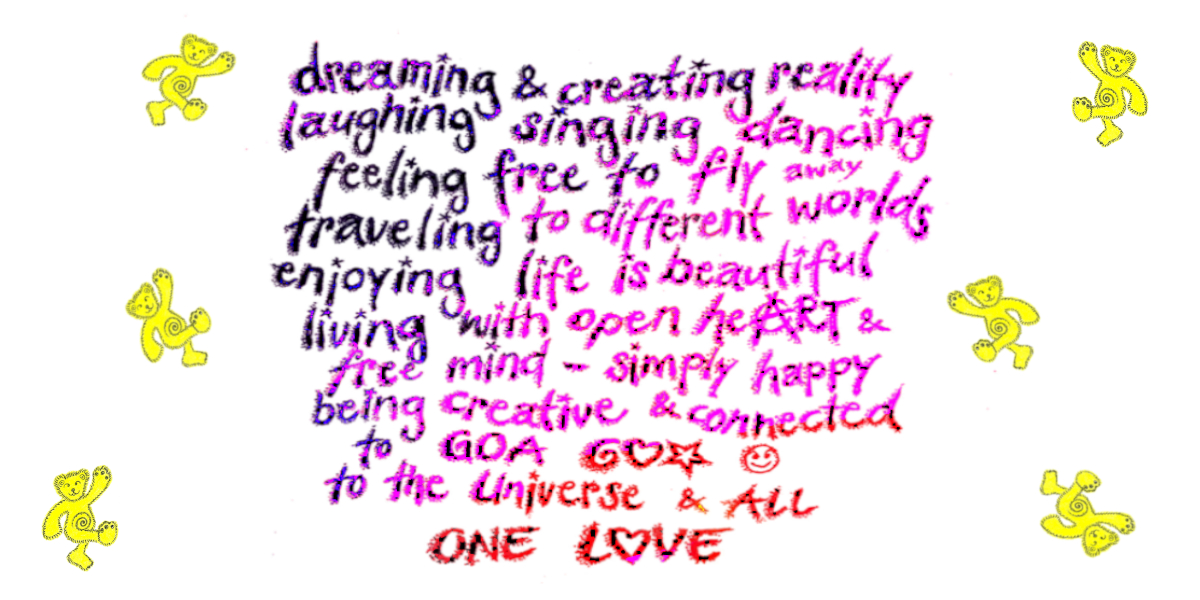 dreaming & creating reality
laughing singing dancing
feeling free to fly away
traveling to different worlds
enjoying life is beautiful
living with open heART &
free mind - simply happy
being creative & connected
to GOA G♡☆ ☺
to the Universe & ALL
ONE L♡VE